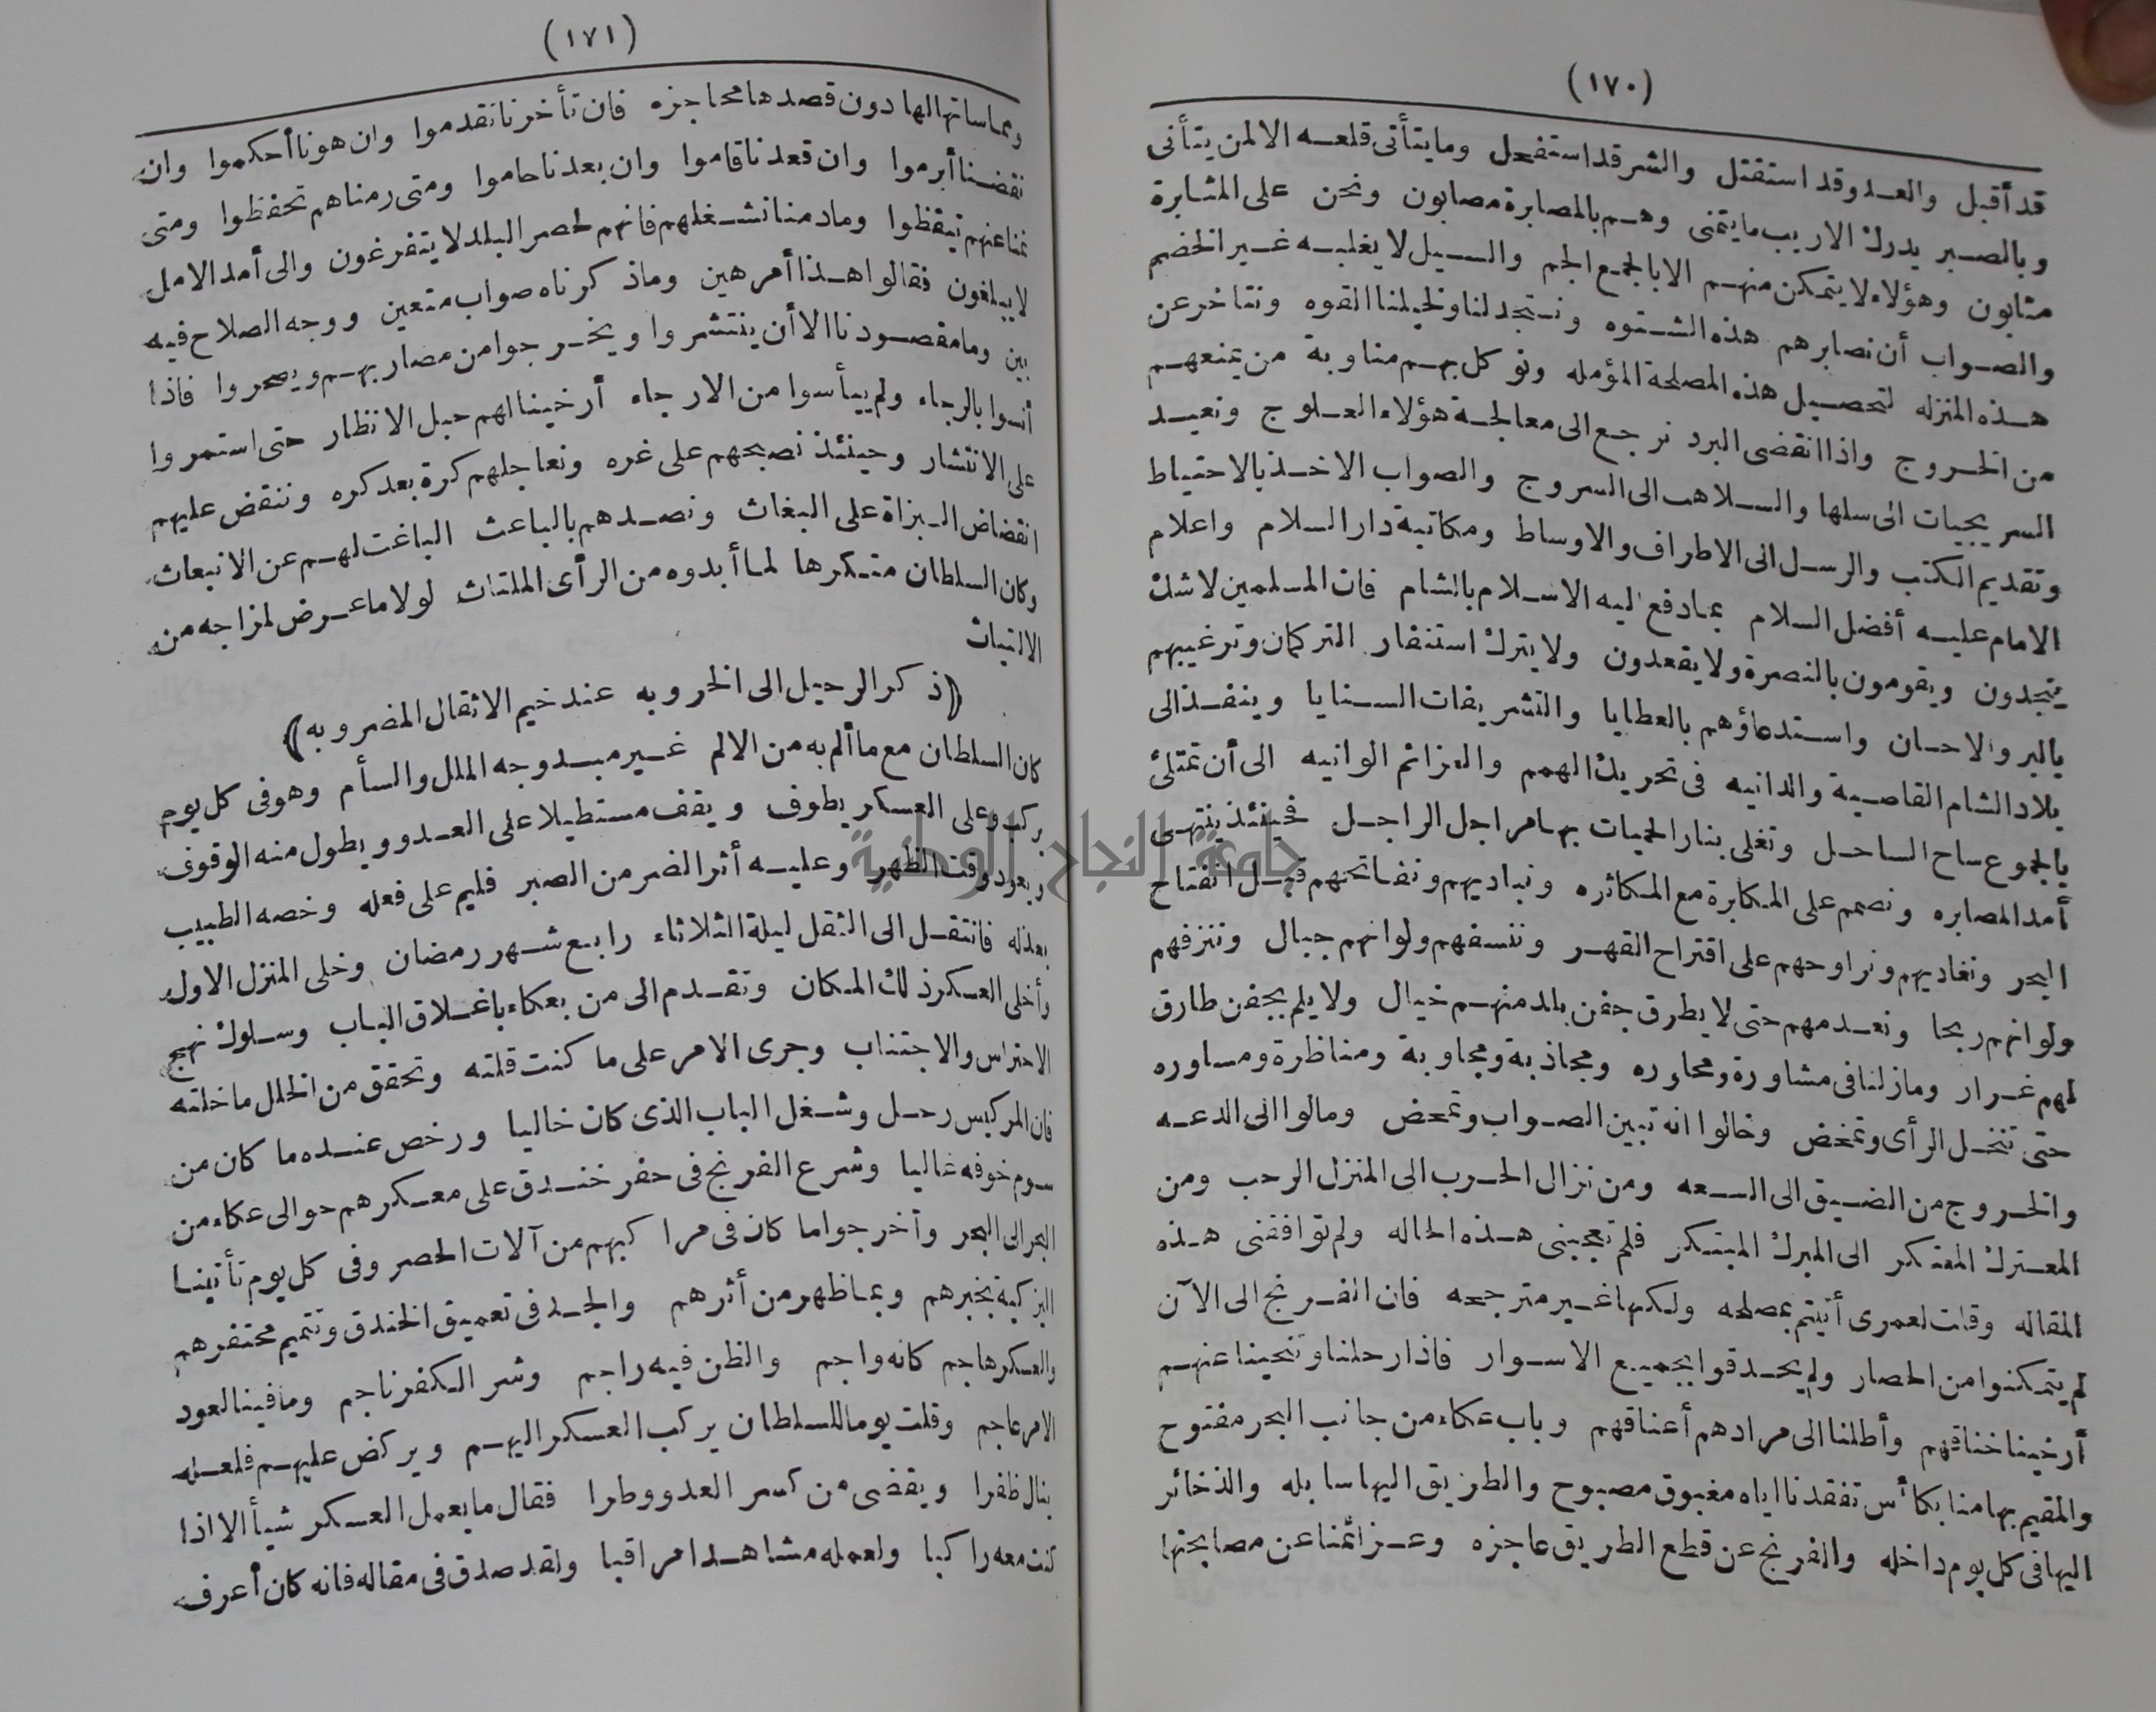 (١٧٠)
قد أقبل والعدو قد استقتل والشر قد استفحل وما يتأتى قلعه الا لمن يتأنى
وبالصبر يدرك الاريب ما يتمنى وهم بالمصابرة مصابون ونحن على المثابرة
مثابون وهؤلاء لا يتمكن منهم الا بالجمع الجم والسيل لا يغلبه غير الخضم
والصواب أن نصابرهم هذه الشتوه ونستجد لنا ولخيلنا القوه ونتاخر عن
هذه المنزله لتحصيل هذه المصلحة المؤمله ونوكل بهم مناوبة من يمنعهم
من الخروج واذا انقضى البرد نرجع الى معالجة هؤلاء العلوج ونعيد
السريجيات الى سلها والسلاهب الى السروج والصواب الاخذ بالاحتياط
وتقديم الكتب والرسل الى الاطراف والاوساط ومكاتبة دار السلام واعلام
الامام عليه أفضل السلام بما دفع اليه الاسلام بالشام فان المسلمين لا شك
ينجدون ويقومون بالنصرة ولا يقعدون ولا يترك استنفار التركمان وترغيبهم
بالبر والاحسان واستدعاؤهم بالعطايا والتشريفات السنايا وينفذ الى
بلاد الشام القاصية والدانيه فى تحريك الهمم والعزائم الوانيه الى أن تمتلئ
بالجموع ساح الساحل وتغلى بنار الحميات بها مراجل الراجل فحينئذ ننتهى
أمد المصابره ونصمم على المكابرة مع المكاثره ونباديهم ونفاتحهم قبل انفتاح
البحر ونغاديهم ونراوحهم على اقتراح القهر وننسفهم ولو انهم جبال وننزفهم
ولو انهم ريحا ونعدمهم حتى لا يطرق جفن بلد منهم خيال ولا يلم بجفن طارق
لهم غرار وما زلنا فى مشاورة ومحاوره ومجاذبة ومجاوبة ومناظرة ومساوره
حتى تنخل الرأى وتمخض وخالوا انه تبين الصواب وتمحض ومالوا الى الدعه
والخروج من الضيق الى السعه ومن نزال الحرب الى المنزل الرحب ومن
المعترك المعتكر الى المبرك المبتكر فلم تعجبنى هذه الحاله ولم توافقنى هذه
المقاله وقلت لعمرى أتيتم بمصلحه ولكنها غير مترجحه فان الفرنج الى الآن
لم يتمكنوا من الحصار ولم يحدقوا بجميع الاسوار فاذا رحلنا وتنحينا عنهم
أرخينا خناقهم وأطلنا الى مرادهم أعناقهم وباب عكاء من جانب البحر مفتوح
والمقيم بها منا بكأس تفقدنا اياه مغبوق مصبوح والطريق اليها سابله والذخائر
اليها فى كل يوم داخله والفرنج عن قطع الطريق عاجزه وعزائمنا عن مصابحتها
(١٧١)
ومماساتها لها دون قصدها محاجزه فان تأخرنا تقدموا وان هونا أحكموا وان
نقضنا أبرموا وان قعدنا قاموا وان بعدنا حاموا ومتى رمناهم تحفظوا ومتى
نمنا عنهم تيقظوا وما دمنا نشغلهم فانهم لحصر البلد لا يتفرغون والى أمد الامل
لا يبلغون فقالوا هذا أمر هين وما ذكرناه صواب متعين ووجه الصلاح فيه
بين وما مقصودنا الا أن ينتشروا ويخرجوا من مضاربهم ويصحروا فاذا
أنسوا بالرجاء ولم ييأسوا من الارجاء أرخينا لهم حبل الانظار حتى استمروا
على الانتشار وحينئذ نصبحهم على غره ونعاجلهم كرة بعد كره وننقض عليهم
انقضاض البزاة على البغاث ونصدهم بالباعث الباغت لهم عن الانبعاث
وكان السلطان متكرها لما أبدوه من الرأى الملتاث لولا ما عرض لمزاجه من
الالتياث
(ذكر الرحيل الى الخروبه عند خيم الاثقال المضروبه)
كان السلطان مع ما ألم به من الالم غير مبد وجه الملل والسأم وهو فى كل يوم
يركب وعلى العسكر يطوف ويقف مستطيلا على العدو ويطول منه الوقوف
ويعود وقت الظهر وعليه أثر الضر من الصبر فليم على فعله وخصه الطبيب
بعذله فانتقل الى الثقل ليلة الثلاثاء رابع شهر رمضان وخلى المنزل الاول
وأخلى العسكر ذلك المكان وتقدم الى من بعكاء باغلاق الباب وسلوك نهج
الاحتراس والاجتناب وجرى الامر على ما كنت قلته وتحقق من الخلل ما خلته
فان المركيس رحل وشغل الباب الذى كان خاليا ورخص عنده ما كان من
سوم خوفه غاليا وشرع الفرنج فى حفر خندق على معسكرهم حوالى عكاء من
البحر الى البحر وأخرجوا ما كان فى مراكبهم من آلات الحصر وفى كل يوم تأتينا
اليزكية بخبرهم وبما ظهر من أثرهم والجد فى تعميق الخندق وتتميم محتفرهم
والعسكر هاجم كانه واجم والظن فيه راجم وشر الكفر ناجم وما فينا لعود
الامر عاجم وقلت يوما للسلطان يركب العسكر اليهم ويركض عليهم فلعله
ينال ظفرا ويقضى من كسر العدو وطرا فقال ما يعمل العسكر شيأ الا اذا
كنت معه راكبا ولعمله مشاهدا مراقبا ولقد صدق فى مقاله فانه كان أعرف
جامعة النجاح الوطنية